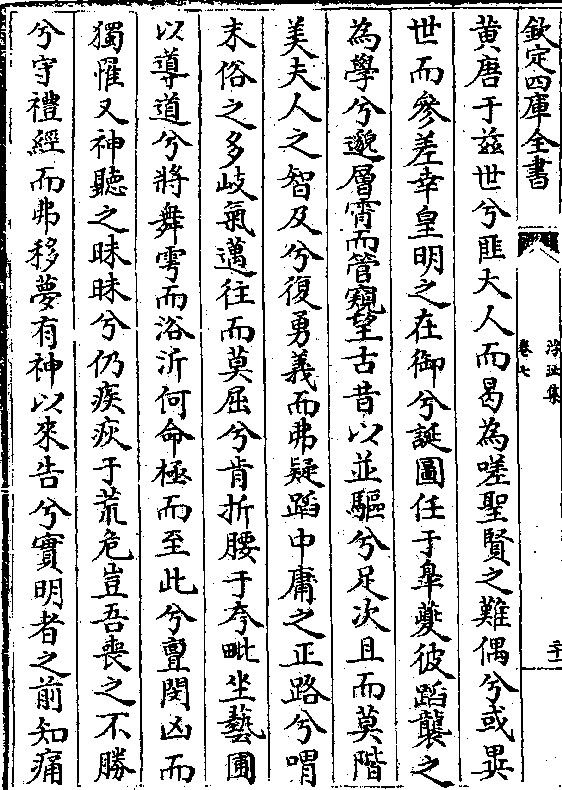 欽定四庫全書
浮沚集
卷七
二十一
黄唐于兹世兮匪大人而曷為嗟聖賢之難偶兮或異
世而參差幸皇明之在御兮誕圖任于臯夔彼蹈襲之
為學兮邈層霄而管窺望古昔以並驅兮足次且而莫階
美夫人之智及兮復勇義而弗疑蹈中庸之正路兮喟
末俗之多岐氣邁往而莫屈兮肯折腰于夸毗坐藝圃
以導道兮將舞雩而浴沂何命極而至此兮亶閔凶而
獨罹叉神聽之昧昧兮仍疾疢于荒危豈吾喪之不勝
兮守禮經而弗移夢有神以來告兮實明者之前知痛